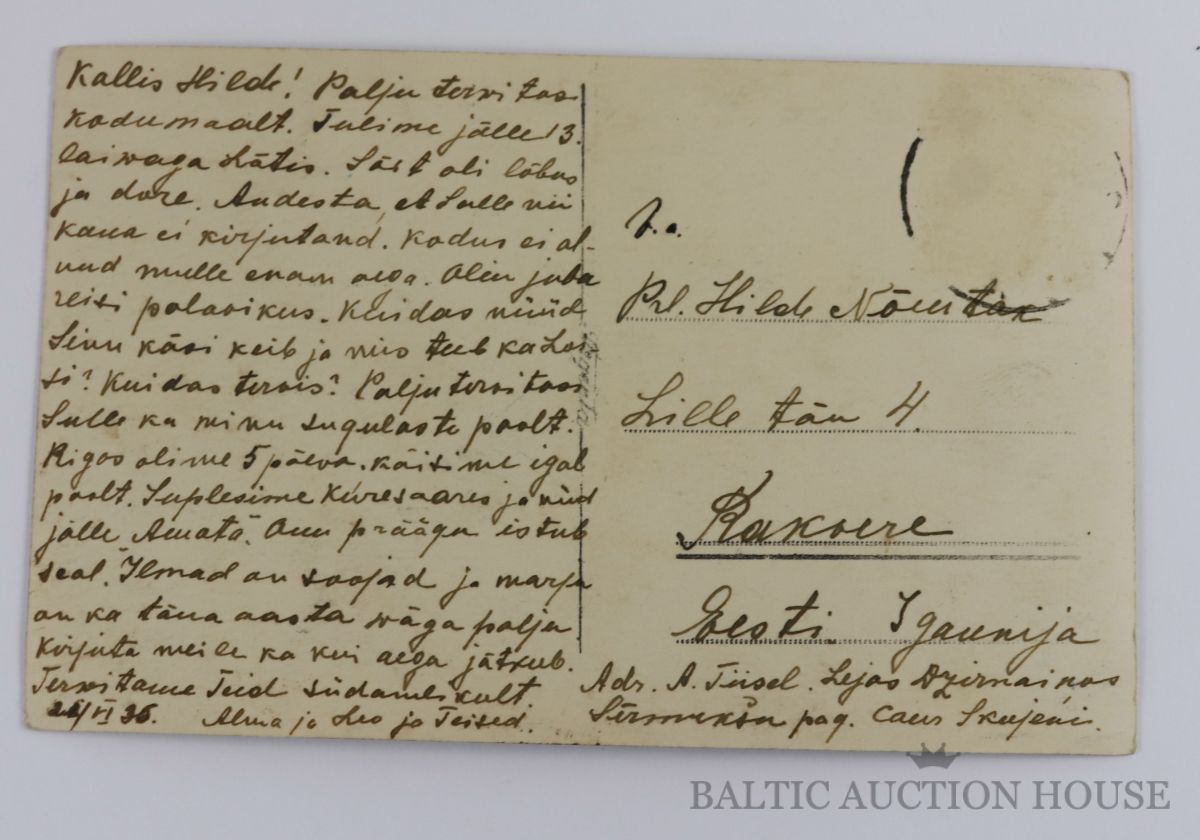 Kallis Hilde! Palju tervitosi
kodumaalt. Tulime jälle 13.
laiwaga Lätis. Sõit oli lõbus
ja dore. Andesta, et Sulle nii
kaua ei kirjutand. Kodus ei ol-
nud mulle enam aega. Olin juba
reisi palavikus. Kuidas nüüd
Sinu käsi keib ja mis teeb ka
si? Kuidas tervis? Palju tervitosi
Sulle ka minu sugulaste poolt.
Rigas olime 5 päeva. Käisime igal
poolt. Suplesime Kuresaares ja nüüd
jälle "Amatā". Onu präägu istub
seal. Ilmad on soojad ja marju
on ka täna aasta wäga palju
Kirjuta meile ka kui aega jätkub.
Terwitame Teid südamlikult.
VI 36. Alma ja Leo ja Teised.
Prl. Hilde
Lille tän 4.
Rakvere
Eesti Igaunija
Adr. A. Tiisel. Lejas Dzirnavinas
pag. Caur Skujeni.
BALTIC AUCTION HOUSE